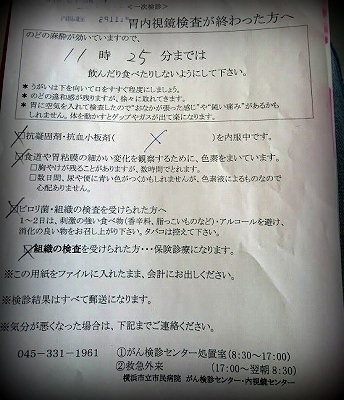 <一次検診>
胃内視鏡検査が終わった方へ
のどの麻酔が効いていますので、
11時25分までは
飲んだり食べたりしないようにして下さい。
* うがいは下を向いて口をすすぐ程度にしましょう。
* のどの違和感が残りますが、徐々に取れてきます。
* 胃に空気を入れて検査したので“おなかが張った感じ”や“鈍い痛み”があるかもしれません。体を動かすとゲップやガスが出て楽になります。
□抗凝固剤・抗血小板剤( )を内服中です。
□食道や胃粘膜の細かい変化を観察するために、色素をまいています。
□胸やけが残ることがありますが、数時間でとれます。
□数日間、尿や便に青い色がつくかもしれませんが、色素液によるものなので
心配ありません。
□ピロリ菌・組織の検査を受けられた方へ
1～2日は、刺激の強い食べ物(香辛料、脂っこいものなど)・アルコールを避け、
消化の良い物をお召し上がり下さい。タバコは控えて下さい。
□組織の検査を受けられた方・・・保険診療になります。
※この用紙をファイルに入れたまま、会計にお出しください。
※検診結果はすべて郵送になります。
※気分が悪くなった場合は、下記までご連絡ください。
045-331-1961 ①がん検診センター処置室(8:30～17:00)
②救急外来 (17:00～翌朝 8:30)
横浜市立市民病院 がん検診センター・内視鏡センター